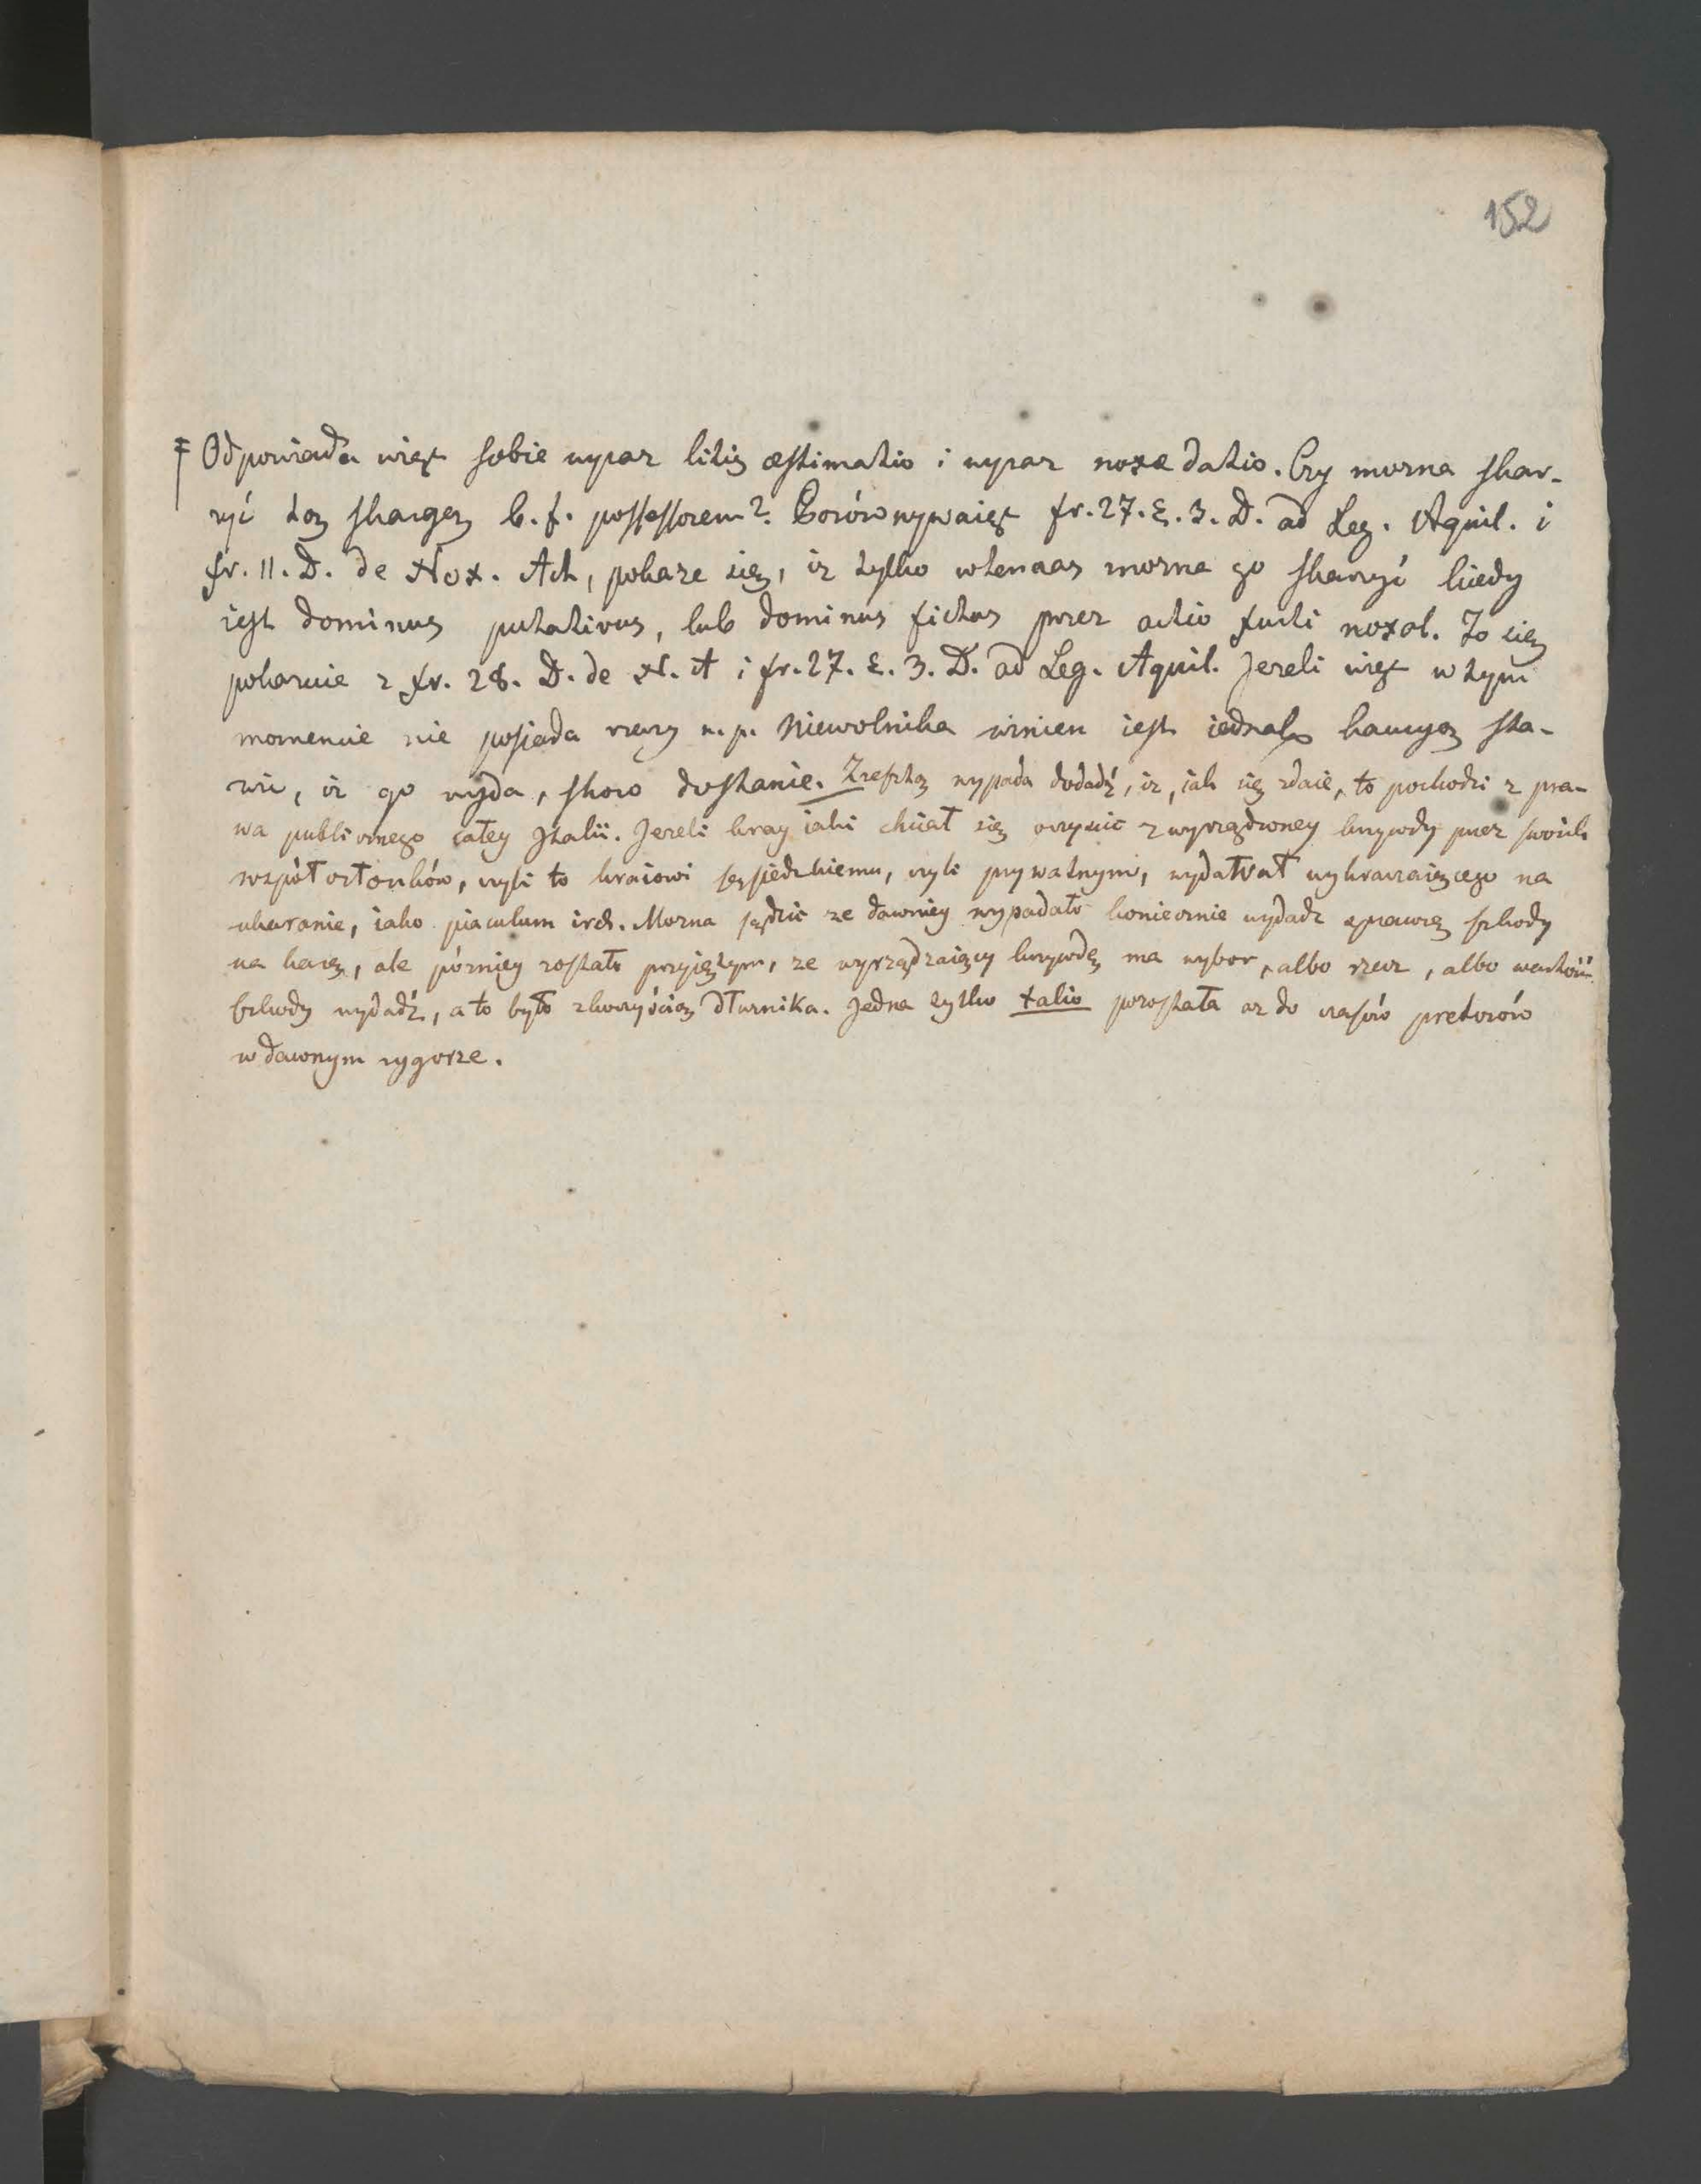 152
‡ Odpowiada więc sobie wyraz litis æstimatio i wyraz noxæ datio. Czy mozna skar-
zyć tą skargą b. f. possessorem? Porównywaiąc fr. 27. §. 3. D. ad Leg. Aquil. i
fr. 11. D. de Nox. Act, pokaze się, iz tylko wtenczas mozna go skarzyć kiedy
iest dominus putativus, lub dominus fictus przez actio furti noxal. To się
pokazuie z fr. 28. D. de N. A i fr. 27. §. 3. D. ad Leg. Aquil. Jezeli więc w tym
momencie nie posiada rzeczy n. p. Niewolnika winien iest iednak kaucyą sta-
wić, iz go wyda, skoro dostanie. Zresztą wypada dodadź, iz, iak się zdaie, to pochodzi z pra-
wa publicznego całey Jtalii. Jezeli kray iaki chciał się oczyscić z wyrządzoney krzywdy przez swoich
współczłonków, czyli to kraiowi sąsiedzkiemu, czyli prywatnym, wydawał wykraczaiącego na
ukaranie, iako piaculum ircd. Mozna sądzić ze dawniey wypadało koniecznie wydadz sprawcę szkody
na karę, ale pózniey zostało przyiętym, ze wyrządzaiący krzywdę ma wybor, albo rzecz, albo wartość
szkody wydadź, a to było z korzyścią dłuznika. Jedna tylko talio pozostała az do czasów pretorów
w dawnym rygorze.